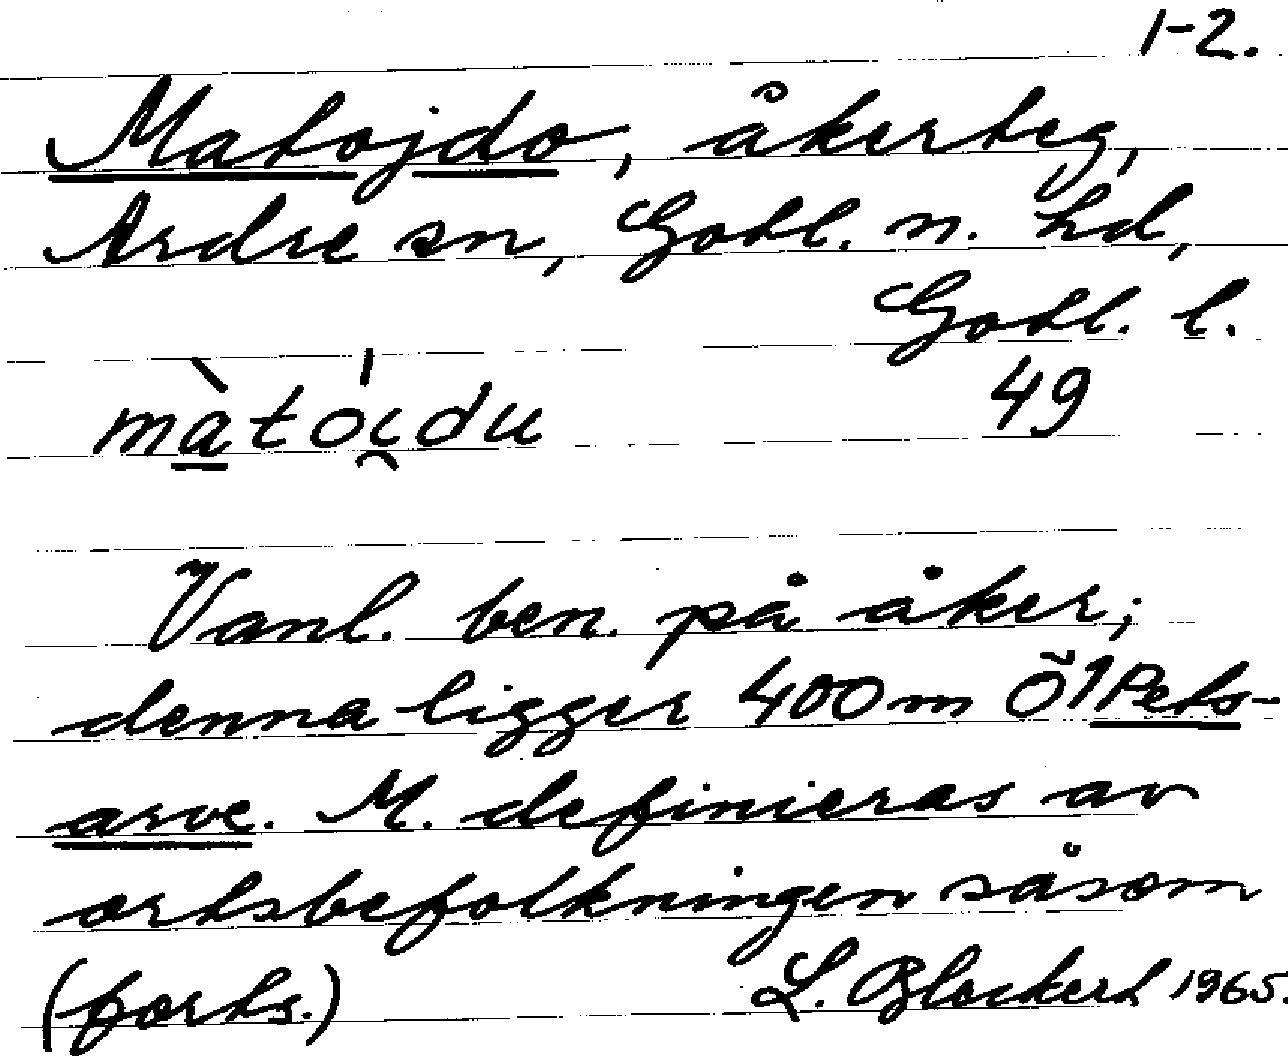 1-2.
Matojdo, åkerteg,
Ardre sn, Gotl. n. hd,
Gotl. l.
màtói̯du 49
Vanl. ben. på åker;
denna ligger 400 m Ö1 Pets-
arve. M. definieras av
ortsbefolkningen såsom
(forts.) L. Blockert 1965.